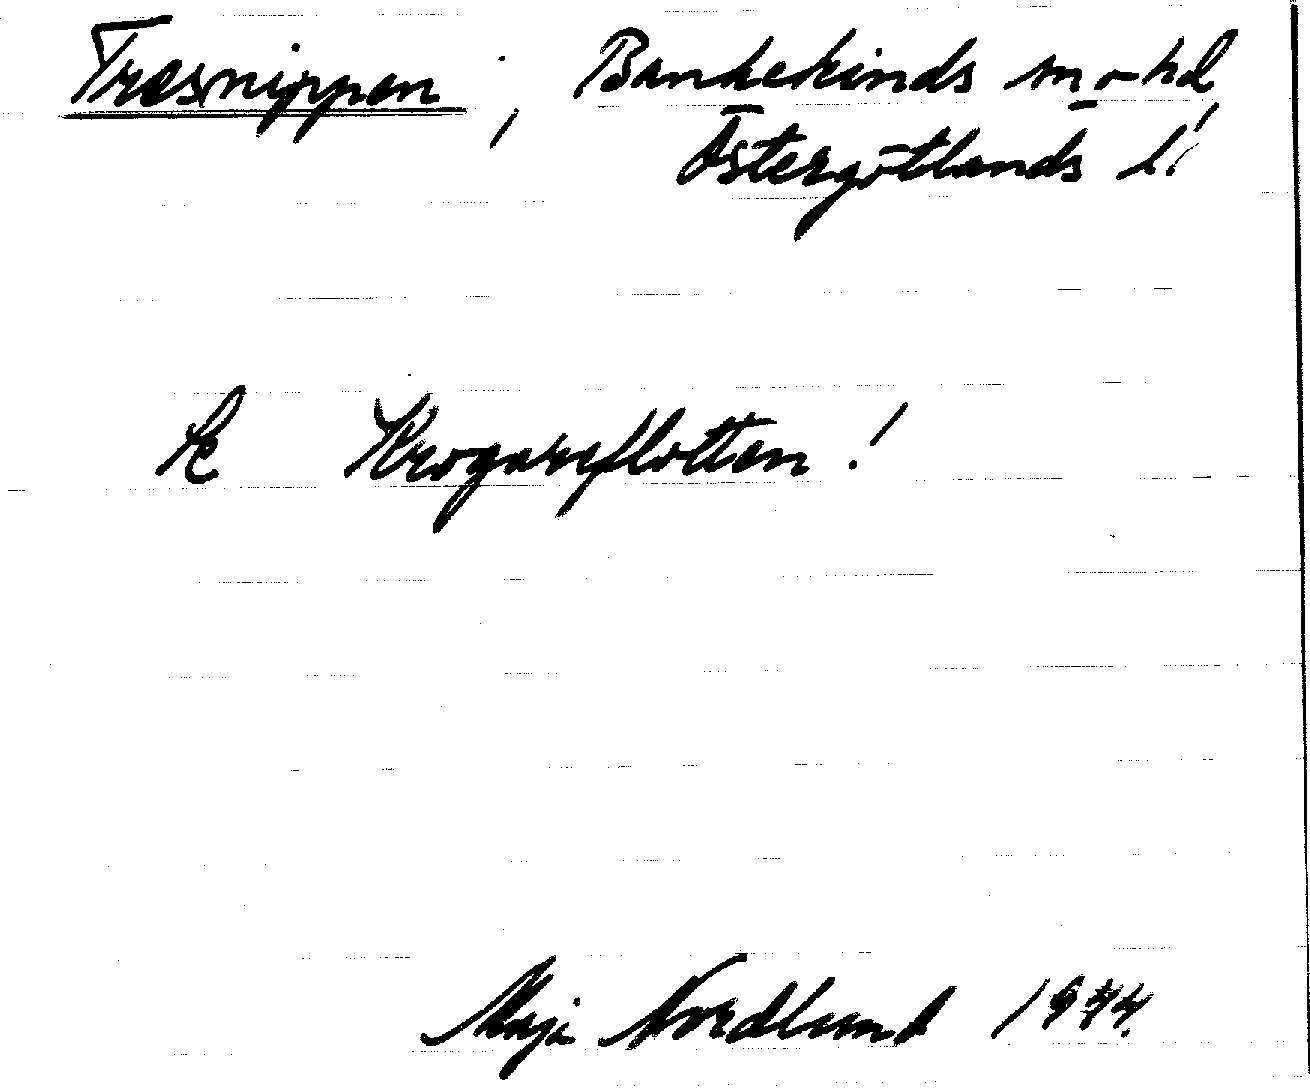 Träsnippen; Bankekinds sn o hd
Östergötlands l.
Se Krogareflotten!
Maja Nordlund 1974.